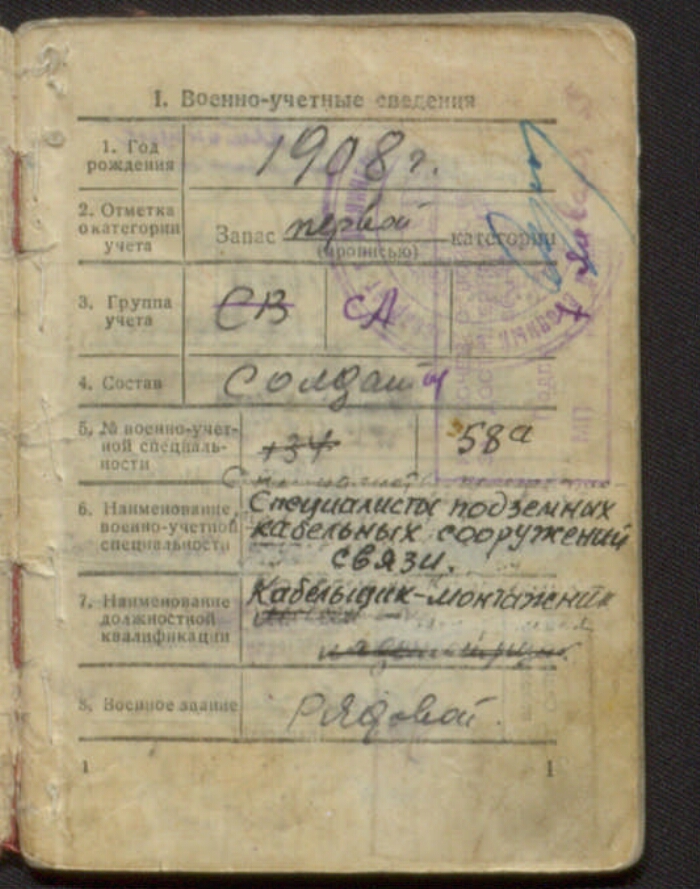 I. Военно-учетные сведения
1. Год
рождения
1908 г.
2. Отметка
о категории
учета
Запас первой категории
(прописью)
3. Группа
учета
СВ СА
4. Состав
Солдаты
5. № военно-учет-
ной специаль-
ности
134 58а
6. Наименование
военно-учетной
специальности
Специалисты подземных
кабельных сооружений
связи.
7. Наименование
должностной
квалификации
Кабельщик-монтажник
8. Военное звание
Рядовой.
МП
1 1